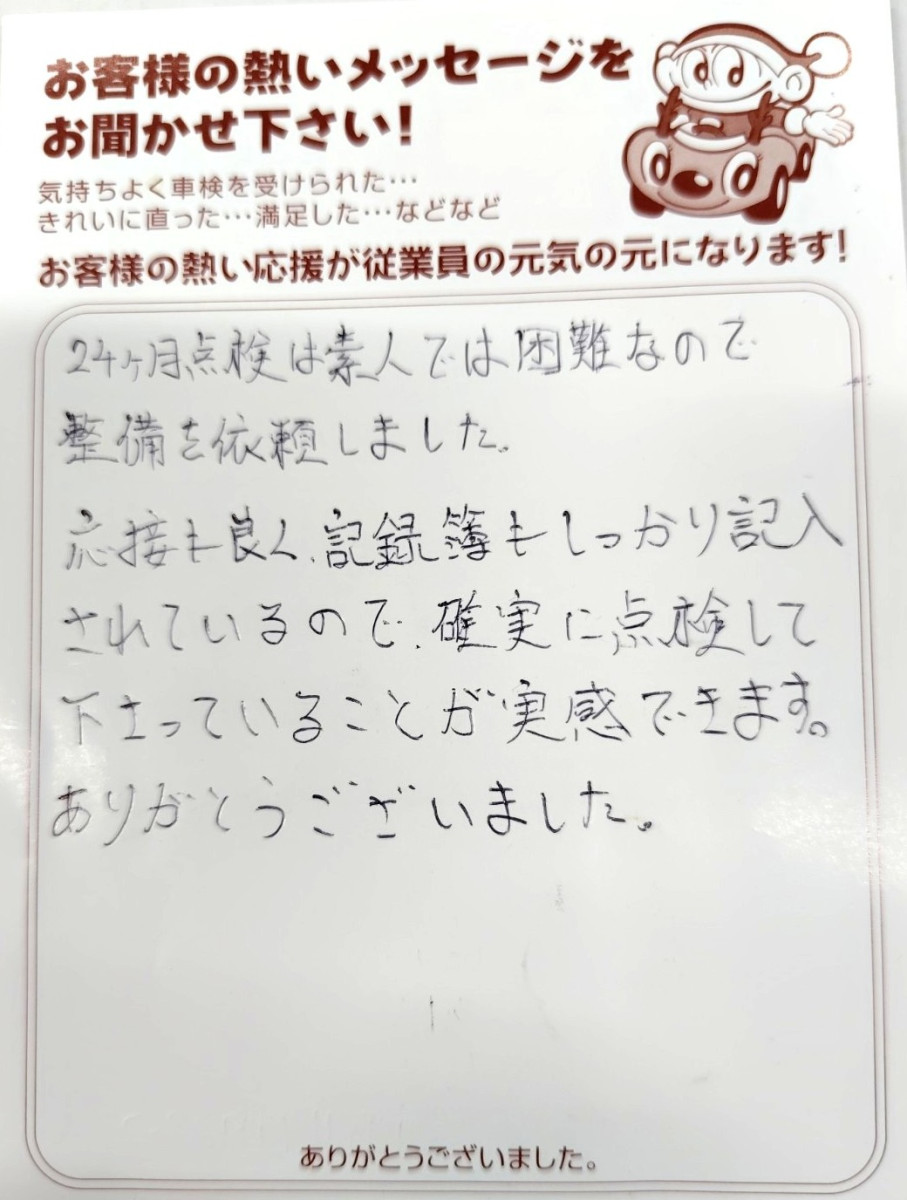 お客様の熱いメッセージを
お聞かせ下さい!
気持ちよく車検を受けられた…
きれいに直った…満足した…などなど
お客様の熱い応援が従業員の元気の元になります!
24ヶ月点検は素人では困難なので
整備を依頼しました。
応接も良く、記録簿もしっかり記入
されているので、確実に点検して
下さっていることが実感できます。
ありがとうございました。
ありがとうございました。